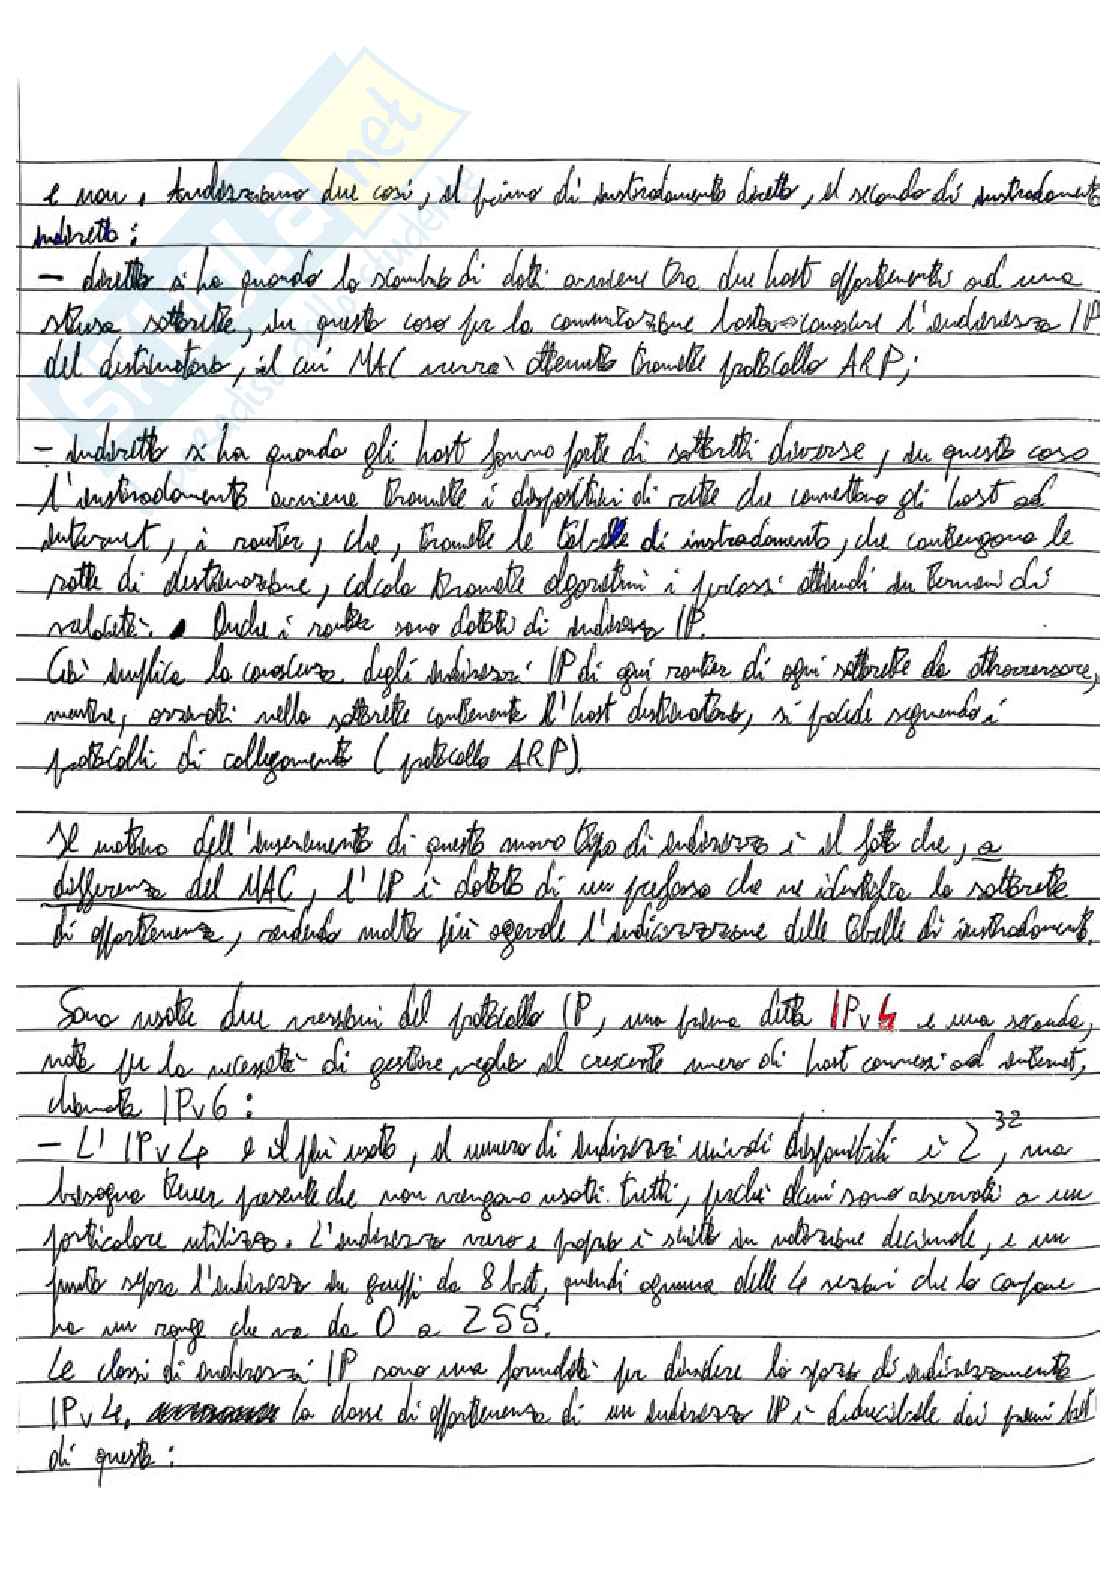 SKUOLA.net
paradiso dello studente
e non. Analizziamo due casi, il primo di instradamento diretto, il secondo di instradamento
indiretto:
– diretto si ha quando lo scambio di dati avviene tra due host appartenenti ad una
stessa sottorete, in questo caso per la comunicazione basta conoscere l'indirizzo IP
del destinatario, il cui MAC verrà ottenuto tramite protocollo ARP;
– indiretto si ha quando gli host fanno parte di sottoreti diverse, in questo caso
l'instradamento avviene tramite i dispositivi di rete che connettono gli host ad
internet, i router, che, tramite le tabelle di instradamento, che contengono le
rotte di destinazione, calcola tramite algoritmi i percorsi ottimali in termini di
velocità. Anche i router sono dotati di indirizzo IP.
Ciò implica la conoscenza degli indirizzi IP di ogni router di ogni sottorete da attraversare,
mentre, arrivati nella sottorete contenente l'host destinatario, si procede seguendo i
protocolli di collegamento (protocollo ARP).
Il motivo dell'inserimento di questo nuovo tipo di indirizzo è il fatto che, a
differenza del MAC, l'IP è dotato di un prefisso che ne identifica la sottorete
di appartenenza, rendendo molto più agevole l'indicizzazione delle tabelle di instradamento.
Sono usate due versioni del protocollo IP, una prima detta IPv4 e una seconda,
nata per la necessità di gestire meglio il crescente numero di host connessi ad internet,
chiamata IPv6:
– L' IPv4 è il più usato, il numero di indirizzi univoci disponibili è 2^32, ma
bisogna tener presente che non vengono usati tutti, perché alcuni sono riservati a un
particolare utilizzo. L'indirizzo vero e proprio è scritto in notazione decimale, e un
punto separa l'indirizzo in gruppi da 8 bit, quindi ognuna delle 4 sezioni che lo compone
ha un range che va da 0 a 255.
Le classi di indirizzi IP sono una modalità per dividere lo spazio di indirizzamento
IPv4. La classe di appartenenza di un indirizzo IP è deducibile dai primi bit
di questo: